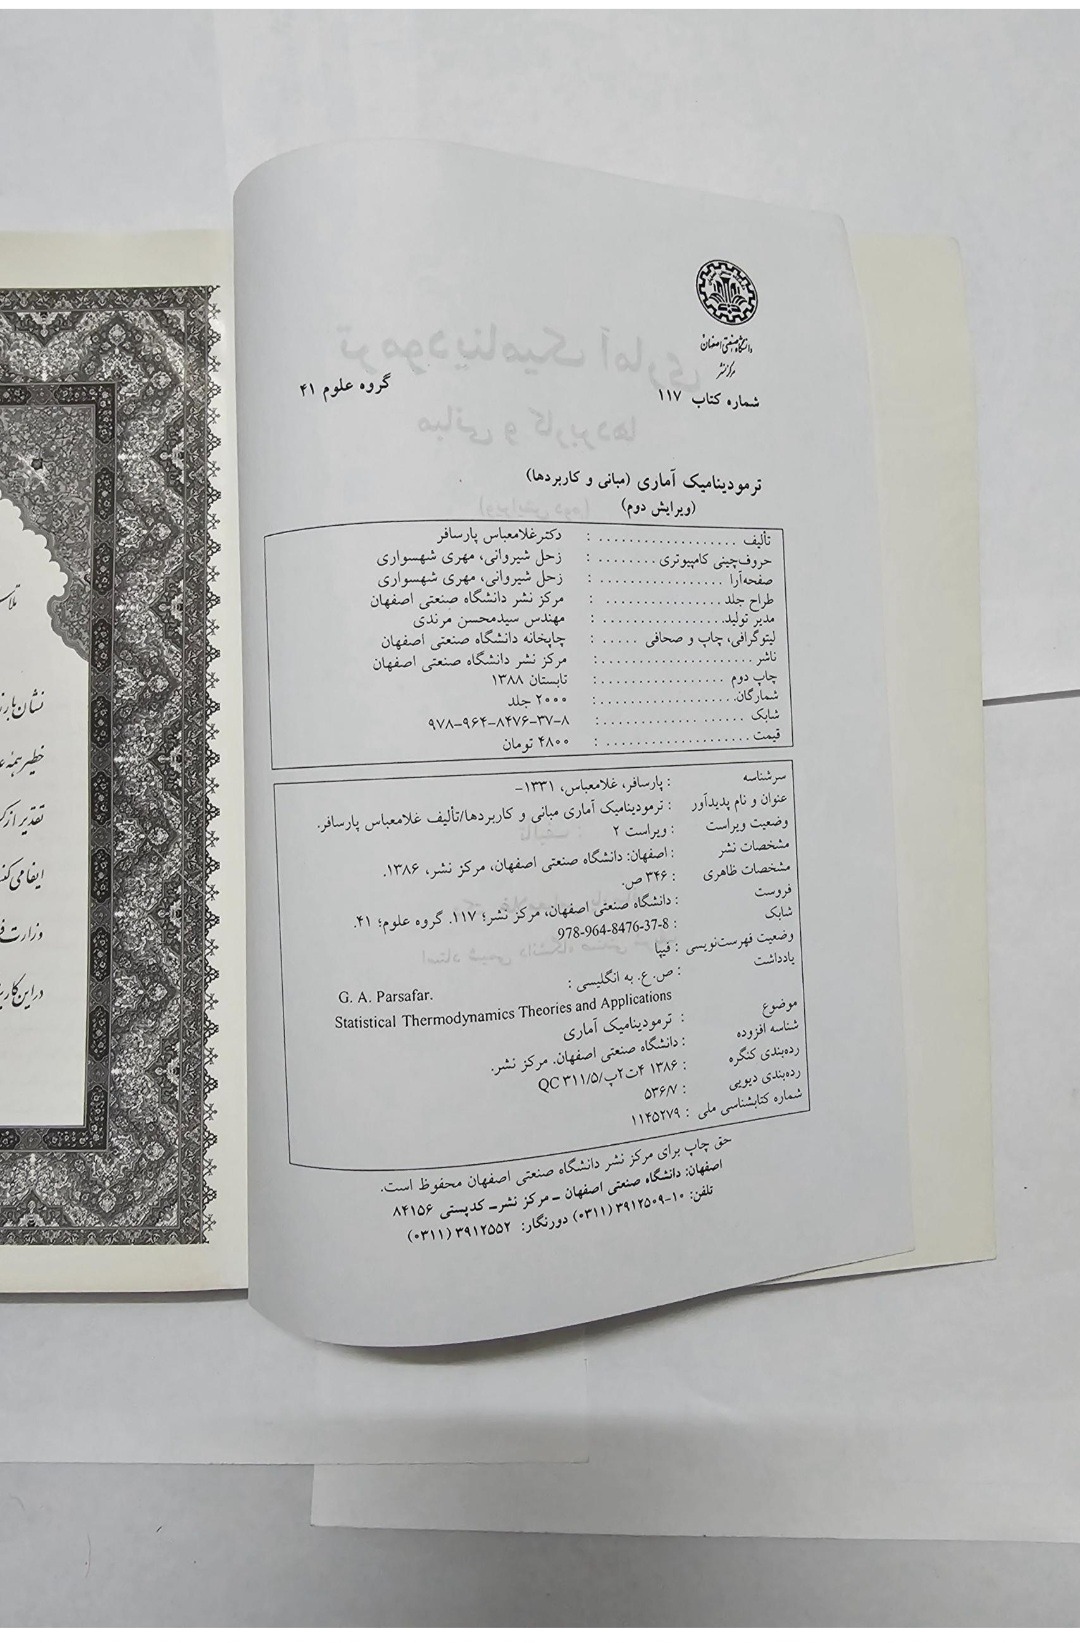 دانشگاه صنعتی اصفهان
مرکز نشر
شماره کتاب ۱۱۷ گروه علوم ۴۱
ترمودینامیک آماری (مبانی و کاربردها)
(ویرایش دوم)
تألیف .................... : دکترغلامعباس پارسافر
حروف‌چینی کامپیوتری ........ : زحل شیروانی، مهری شهسواری
صفحه‌آرا .................. : زحل شیروانی، مهری شهسواری
طراح جلد ................. : مرکز نشر دانشگاه صنعتی اصفهان
مدیر تولید.................. : مهندس سیدمحسن مرندی
لیتوگرافی، چاپ و صحافی ..... : چاپخانه دانشگاه صنعتی اصفهان
ناشر ...................... : مرکز نشر دانشگاه صنعتی اصفهان
چاپ دوم .................. : تابستان ۱۳۸۸
شمارگان.................... : ۲۰۰۰ جلد
شابک ..................... : ۹۷۸-۹۶۴-۸۴۷۶-۳۷-۸
قیمت ..................... : ۴۸۰۰ تومان
سرشناسه : پارسافر، غلامعباس، ۱۳۳۱-
عنوان و نام پدیدآور : ترمودینامیک آماری مبانی و کاربردها/تألیف غلامعباس پارسافر.
وضعیت ویراست : ویراست ۲
مشخصات نشر : اصفهان: دانشگاه صنعتی اصفهان، مرکز نشر، ۱۳۸۶.
مشخصات ظاهری : ۳۴۶ ص.
فروست : دانشگاه صنعتی اصفهان، مرکز نشر؛ ۱۱۷. گروه علوم؛ ۴۱.
شابک : 978-964-8476-37-8
وضعیت فهرست‌نویسی : فیپا
یادداشت : ص. ع. به انگلیسی : G. A. Parsafar.
Statistical Thermodynamics Theories and Applications
موضوع : ترمودینامیک آماری
شناسه افزوده : دانشگاه صنعتی اصفهان. مرکز نشر.
رده‌بندی کنگره : ۱۳۸۶ ۴ت۲پ/۳۱۱/۵ QC
رده‌بندی دیویی : ۵۳۶/۷
شماره کتابشناسی ملی : ۱۱۴۵۲۷۹
حق چاپ برای مرکز نشر دانشگاه صنعتی اصفهان محفوظ است.
اصفهان: دانشگاه صنعتی اصفهان ــ مرکز نشرــ کدپستی ۸۴۱۵۶
تلفن: ۱۰-۳۹۱۲۵۰۹ (۰۳۱۱) دورنگار: ۳۹۱۲۵۵۲ (۰۳۱۱)
نشان‌ها
خطیر همهٔ
تقدیر از
ایفا می
وزارت
در این کار